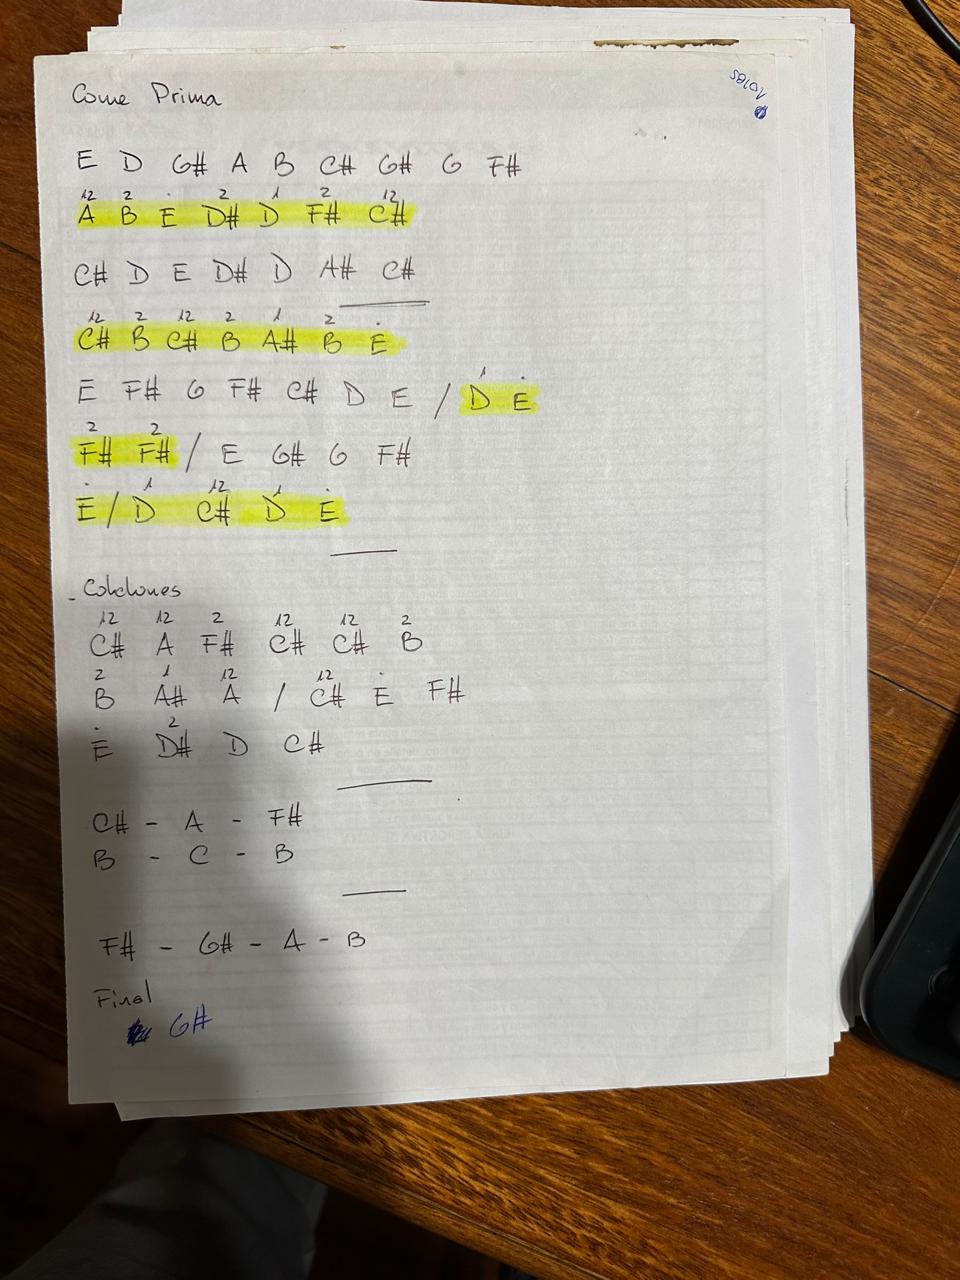 Come Prima
Notas
E D G# A B C# G# G F#
12 2 . 2 1 2 12
A B E D# D F# C#
C# D E D# D A# C#
12 2 12 2 1 2 .
C# B C# B A# B E
1 .
E F# G F# C# D E / D E
2 2
F# F# / E G# G F#
. 1 12 1 .
E / D C# D E
12 12 2 12 12 2
C# A F# C# C# B
2 1 12 12 .
B A# A / C# E F#
. 2
E D# D C#
C# - A - F#
B - C - B
F# - G# - A - B
Final
G#